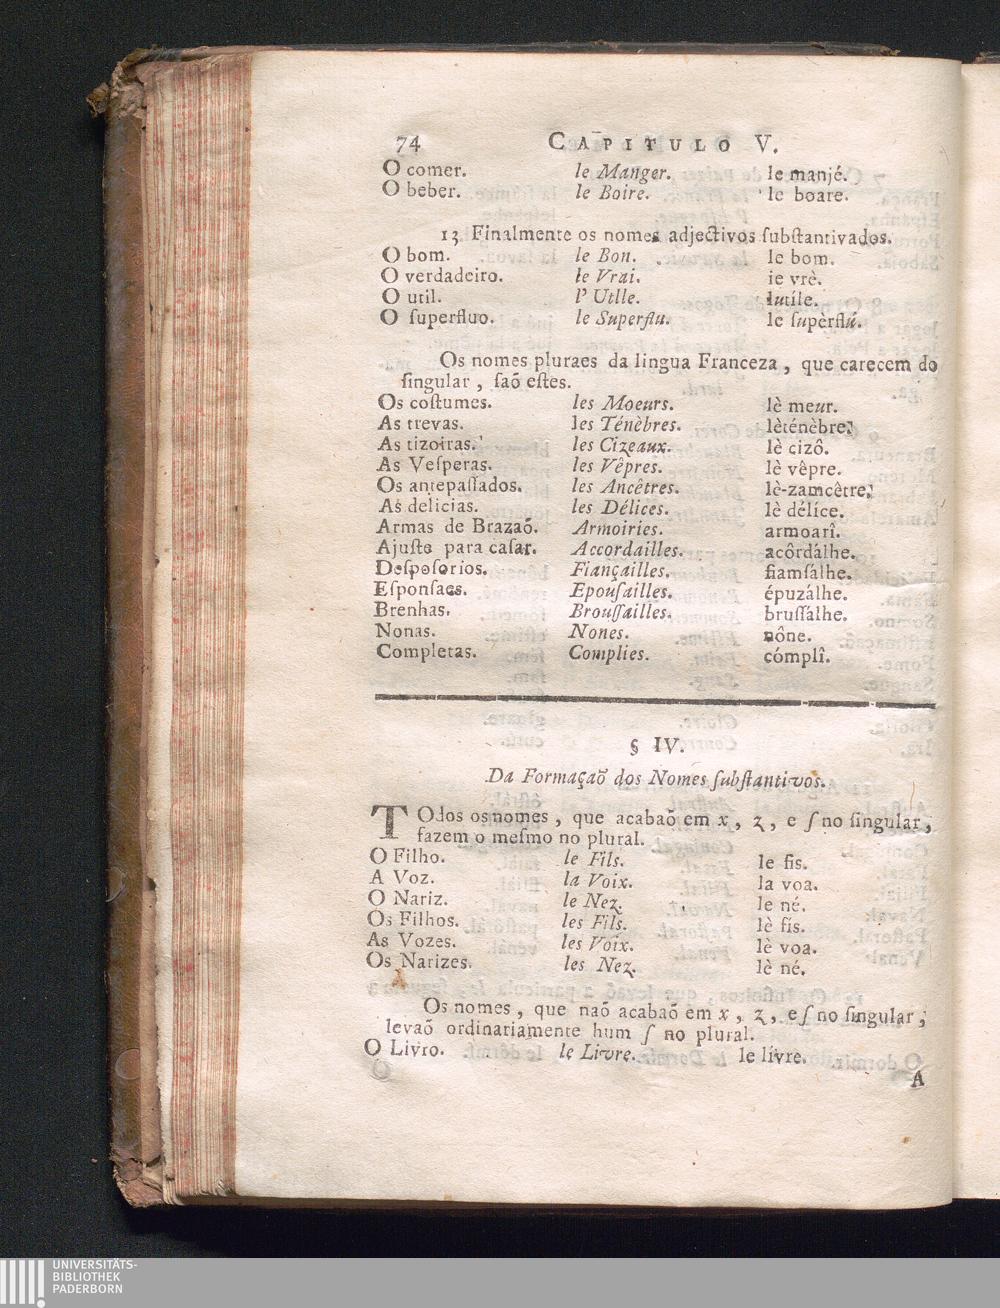 74 CAPITULO V.
O comer. le Manger. le manjé.
O beber. le Boire. le boare.
13 Finalmente os nomes adjectivos ſubſtantivados.
O bom. le Bon. le bom.
O verdadeiro. le Vrai. ie vrè.
O util. l' Utlle. lutíle.
O ſuperfluo. le Superflu. le ſupèrflú.
Os nomes pluraes da lingua Franceza, que carecem do
ſingular, ſaõ eſtes.
Os coſtumes. les Moeurs. lè meur.
As trevas. les Ténèbres. lèténèbre.
As tizoiras. les Cizeaux. lè cizô.
As Veſperas. les Vêpres. lè vêpre.
Os antepaſſados. les Ancêtres. lè-zamcêtre.
As delicias. les Délices. lè délíce.
Armas de Brazaõ. Armoiries. armoarî.
Ajuſte para caſar. Accordailles. acôrdálhe.
Deſpoſorios. Fiançailles. fiamſálhe.
Eſponſaes. Epouſailles. épuzálhe.
Brenhas. Brouſſailles. bruſſálhe.
Nonas. Nones. nône.
Completas. Complies. cómplî.
§ IV.
Da Formaçaõ dos Nomes ſubſtantivos.
TOdos os nomes, que acabaõ em x, z, e ſ no ſingular,
fazem o meſmo no plural.
O Filho. le Fils. le fis.
A Voz. la Voix. la voa.
O Nariz. le Nez. le né.
Os Filhos. les Fils. lè fis.
As Vozes. les Voix. lè voa.
Os Narizes. les Nez. lè né.
Os nomes, que naõ acabaõ em x, z, e ſ no ſingular,
levaõ ordinariamente hum ſ no plural.
O Livro. le Livre. le lívre.
A
UNIVERSITÄTS-
BIBLIOTHEK
PADERBORN